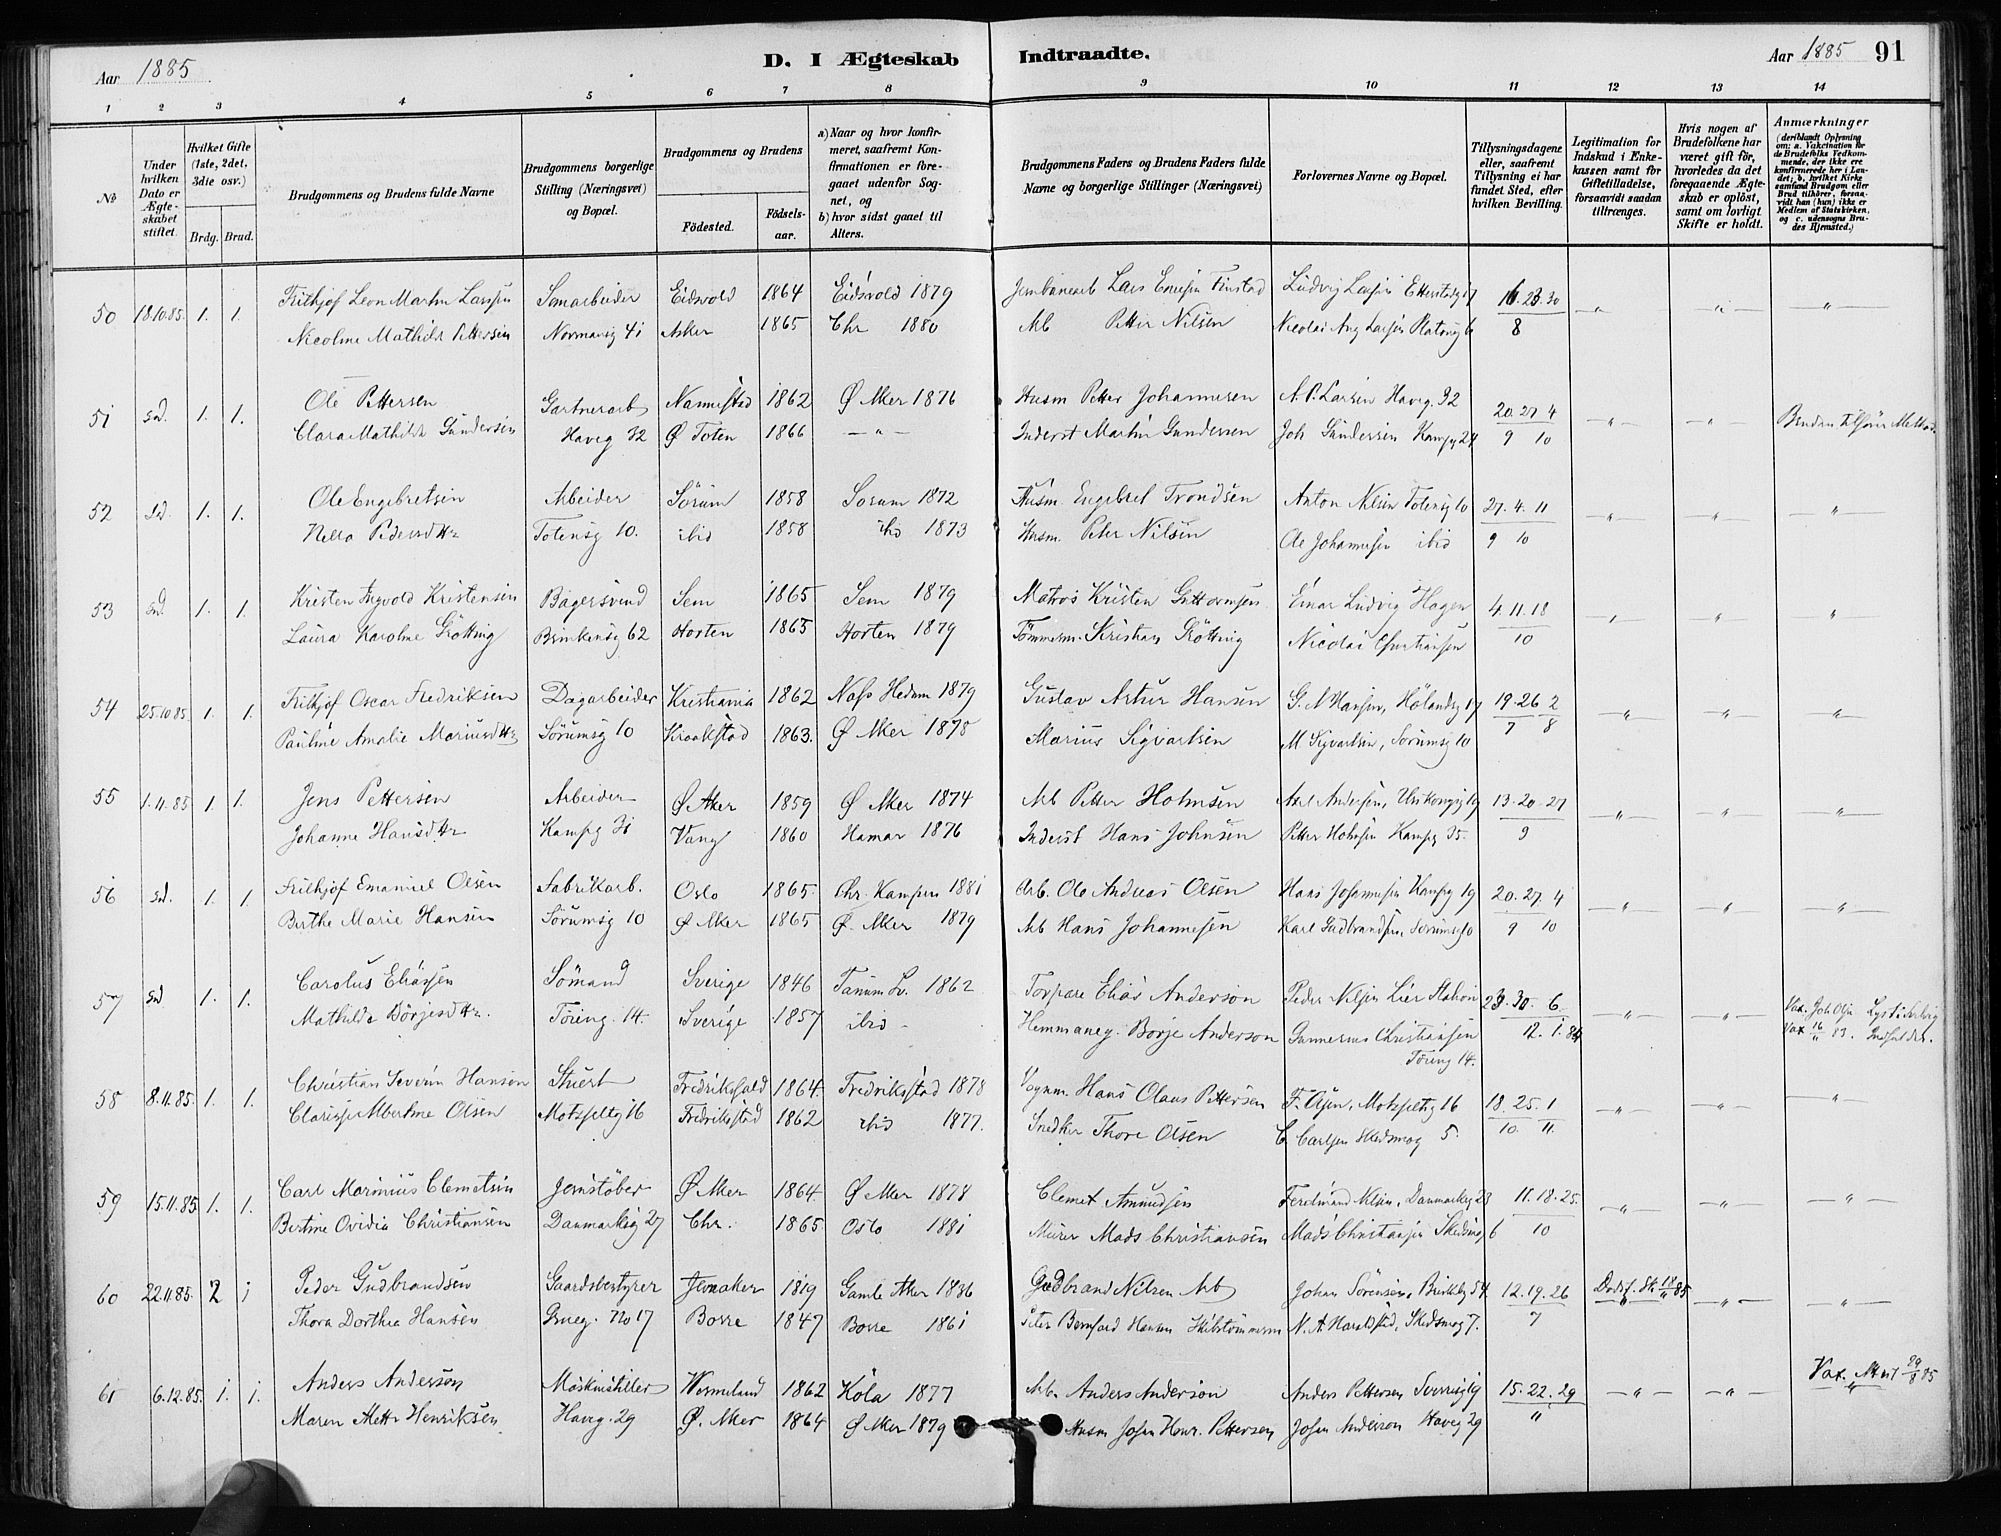 Aar 1885
D. I Ægteskab Indtraadte.
Aar 1885 91
1 2 3 4 5 6 7 8 9 10 11 12 13 14
No
Under hvilken Dato er Ægteskabet stiftet.
Hvilket Gifte (1ste, 2det, 3die osv.)
Brdg. Brud.
Brudgommens og Brudens fulde Navne
Brudgommens borgerlige Stilling (Næringsvei) og Bopæl.
Brudgommens og Brudens
Födested. Födselsaar.
a) Naar og hvor konfirmeret, saafremt Konfirmationen er foregaaet udenfor Sognet, og
b) hvor sidst gaaet til Alters.
Brudgommens Faders og Brudens Faders fulde Navne og borgerlige Stillinger (Næringsvei)
Forlovernes Navne og Bopæl.
Tillysningsdagene eller, saafremt Tillysning ei har fundet Sted, efter hvilken Bevilling.
Legitimation for Indskud i Enkekassen samt for Giftetilladelse, forsaavidt saadan tiltrænges.
Hvis nogen af Brudefolkene har været gift før, hvorledes da det foregaaende Ægteskab er oplöst, samt om lovligt Skifte er holdt.
Anmærkninger (deriblandt Oplysning om: a. Vakcination for de Brudefolks Vedkommende, der ikke ere konfirmerede her i Landet; b. hvilket Kirkesamfund Brudgom eller Brud tilhörer, forsaavidt han (hun) ikke er Medlem af Statskirken, og c. udensogns Brudes Hjemsted.)
50 18.10.85. 1. 1. Frithjof Leon Martin Larsen 1864 Eidsvold 1879 Jernbanearb Lars Finstad Ludvig Larsen 17 16.23.30
Nicoline Mathilde Pettersen 41 Asker 1865 Chr 1880 Arb Petter Nilsen Nicolai Aug Larsen Platoug 6 8
51 sd. 1. 1. Ole Pettersen Gartnerarb Nannestad 1862 Ø Aker 1876 Husm Petter Johannesen N.P. Larsen Haveg. 32 20.27.4
Clara Mathilde Gundersen Haveg 32 Ø Toten 1866 — " — Inderst Martin Gundersen Joh Gundersen Kampg 24 9 10 Bruden tilhører Method.
52 sd. 1. 1. Ole Engebretsen Arbeider Sörum 1858 Sorum 1872 Husm. Engebret Trondsen Anton Nilsen Totensg 10 27.4.11
Pedersdtr Totensg 10. ibid 1858 ibid 1873 Husm. Peter Nilsen Ole Johannesen ibid 9 10
53 sd. 1. 1. Kristen Ingvald Kristensen Bagersvend Sem 1865 Sem 1879 Matros Kristen Guttormsen Einar Ludvig Hagen 4.11.18
Laura Karoline Grötting Brinkensg 62 Horten 1865 Horten 1879 Tömmerm. Kristian Grötting Nicolai Christiansen 10
54 25.10.85. 1. 1. Frithjof Oscar Fredriksen Dagarbeider Kristiania 1862 Næs Hedem 1879 Gustav Artur Hansen G. A Hansen, Hölandsg 17 19.26.2
Pauline Amalie Mariusdtr Sörumsg 10 Kraakstad 1863. Ø Aker 1878 Marius Sigvartsen M Sigvartsen, Sörumsg 10 7 8
55 1.11.85 1. 1. Jens Pettersen Arbeider Ø Aker 1859 Ø Aker 1874 Arb Petter Holmsen Axel Andersen, 19 13.20.27
Johanne Hansdtr Kampg 31 Vang 1860 Hamar 1876 Inderst Hans Johnsen Petter Holmsen Kampg 35. 9
56 sd. 1. 1. Frithjof Emanuel Olsen Fabrikarb. Oslo 1865 Chr. Kampen 1881 Arb. Ole Andreas Olsen Hans Johannesen Kampg 19 20.27.4
Berthe Marie Hansen Sörumsg 10 Ø Aker 1865 Ø. Aker 1879 Arb Hans Johannesen Karl Gudbrandsen, Sorumsg 10 9 10
57 sd 1. 1. Carolus Eliassen Sömand Sverige 1846 Tanum Sv. 1862 Torpare Elias Anderson Peder Nilsen Lier Station 23.30.6 Vax. Joh Olsen
Mathilda Börjesdtr. Töieng. 14. Sverige 1857 ibid - Hemmaneg. Börje Anderson Gunnerius Christiansen 12.1.84 Vax 16/11 83.
Töieng 14.
58 8.11.85. 1. 1. Christian Severin Hansen Stuert Fredrikshald 1864. Fredrikstad 1878 Vognm. Hans Olaus Pettersen Motzfeltg 16 18.25.1
Albertine Olsen Motzfeltg 16 Fredrikstad 1862 ibid 1877. Snedker Thore Olsen C. Carlsen Skedsmog 5. 10 11
59 15.11.85. 1. 1. Carl Marinius Clemetsen Jernstöber Ø Aker 1864. Ø Aker 1878 Clemet Amundsen Ferdinand Nilsen, Danmarksg 23 11.18.25.
Bertine Ovidia Christiansen Danmarksg 27 Chr. 1865 Oslo 1881 Murer Mads Christiansen Mads Christiansen Skedsmog 6 10
60 22.11.85. 2 1 Peder Gudbrandsen Gaardsbestyrer Jevnaker 1819 Gamle Aker 1836 Gudbrand Nilsen Arb Johan Sörensen, 54 12.19.26 Dødsf. Sk 18/11 85
Thora Dorthea Hansen Grueg. No 17 Borre 1847 Borre 1861 Hansen Skibstömmerm N. A. Haraldstad, Skedsmog 7. 7
61 6.12.85. 1. 1. Anders Anderson Maskinstiller Wermeland 1862 Köla 1877 Arb. Anders Anderson Anders Pettersen Sverrigsg 15.22.29 Vax. Attest 29/8 85
Maren Mette Henriksen Haveg. 29 Ø. Aker 1864 Ø Aker 1879 Husm Johan Henr. Pettersen Johan Anderson Haveg 29 11